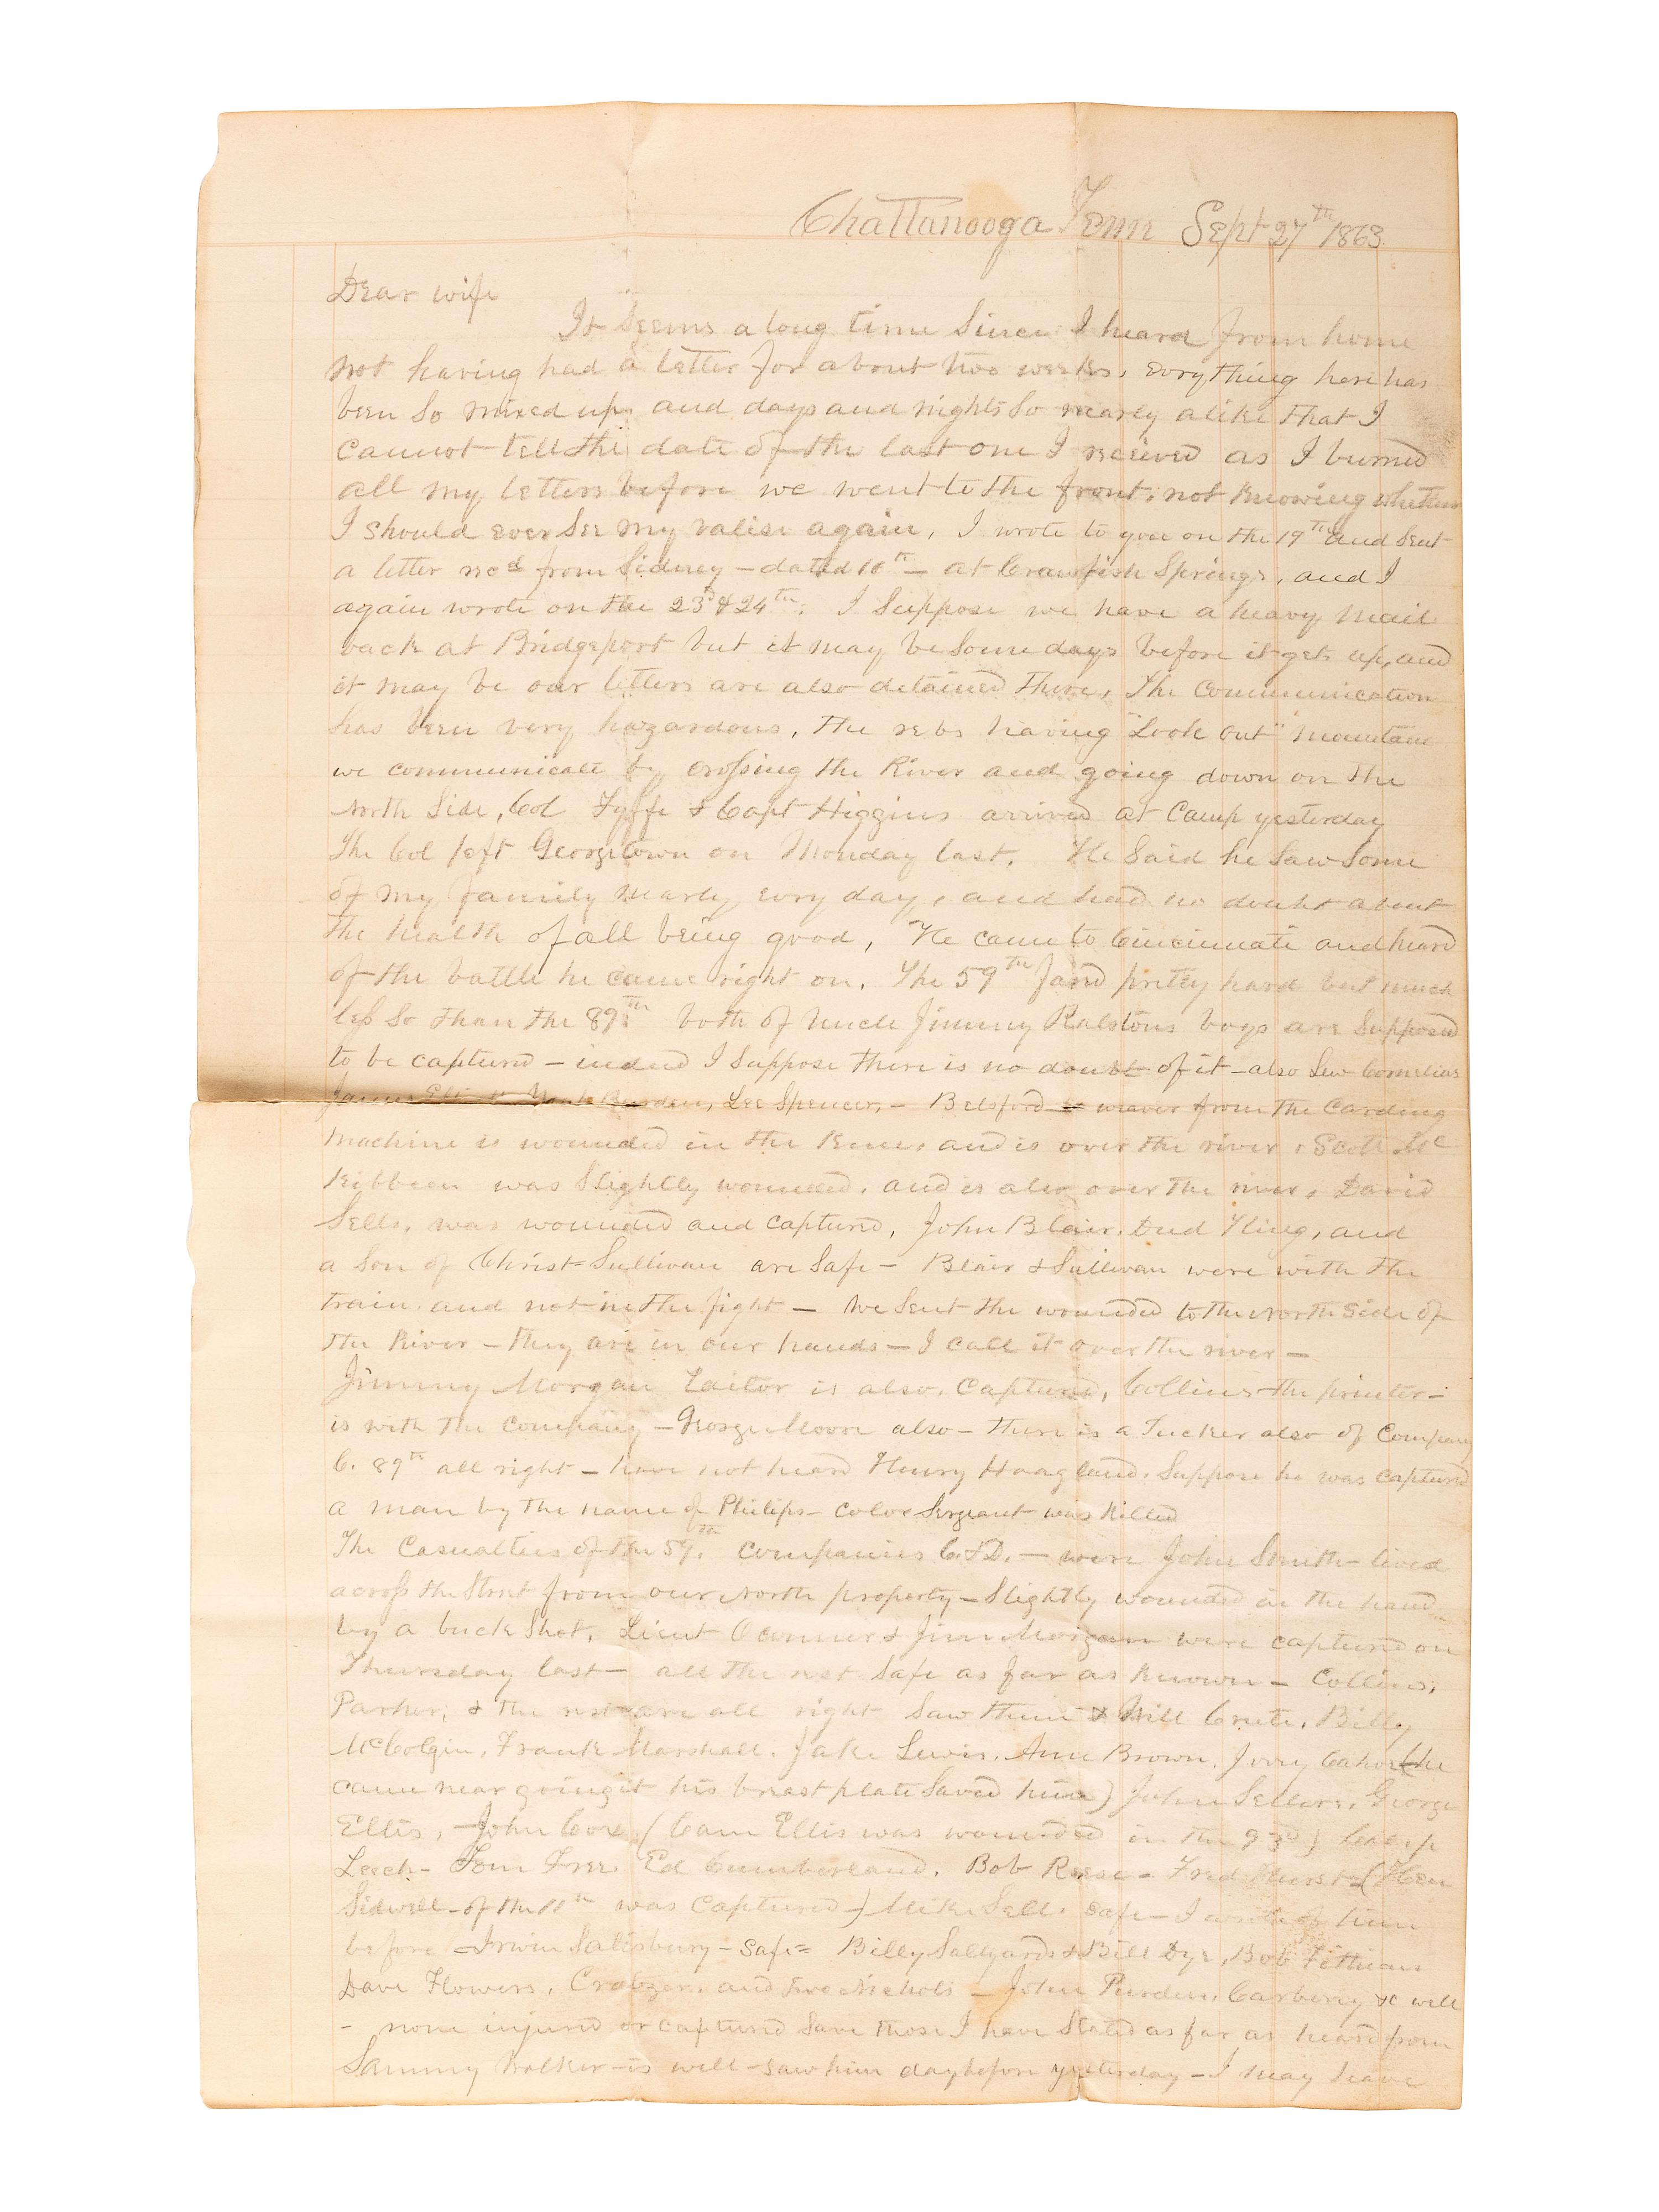 Chattanooga Tenn Sept 27th 1863.
Dear wife
It Seems a long time Since I heard from home
not having had a letter for about two weeks, evrything here has
been So mixed up, and days and nights So nearly alike that I
cannot tell the date of the last one I received as I burned
all my letters before we went to the front, not knowing whether
I should ever See my valise again, I wrote to you on the 19th and Sent
a letter recd from Sidney – dated 10th – at Crawfish Springs, and I
again wrote on the 23d & 24th. I Suppose we have a heavy mail
back at Bridgeport but it may be Some days before it gets up, and
it may be our letters are also detained there, The Communication
has been very hazardous, the rebs having "Look Out" mountain
we communicate by crossing the River and going down on the
North Side, Col Fyffe & Capt Higgins arrived at Camp yesterday
The Col left Georgetown on Monday last. He Said he Saw Some
of my family nearly evry day, and had no doubt about
the health of all being good, He came to Cincinnati and heard
of the battle he came right on. The 59th fared pretty hard but much
less So than the 89th both of Uncle Jimmy Ralstons boys are Supposed
to be captured – indeed I Suppose there is no doubt of it – also Lew Cornelius
James Burden, Lee Spencer, – Belsford weaver from the Carding
Machine is wounded in the Knee, and is over the river, Scott Mc
Kibbeen was Slightly wounded, and is also over the river, David
Sells, was wounded and captured, John Blair, Dud King, and
a Son of Christ Sullivan are Safe – Blair & Sullivan were with the
train and not in the fight – We Sent the wounded to the North Side of
the River – they are in our hands – I call it over the river –
Jimmy Morgan Tailor is also Captured, Collins the printer –
is with the company – George Moore also – there is a Tucker also of Company
C. 89th all right – have not heard Henry Hoagland, Suppose he was captured
a man by the name of Philips – Color Sergeant was Killed
The Casualties of the 59th Companies C. & D. – were John Smith – lived
across the Street from our North property – Slightly wounded in the hand
by a buck Shot, Lieut Oconner & Jim Morgan were captured on
Thursday last – all the rest Safe as far as known – Collins,
Parker, & the rest are all right Saw them & Will Crute, Billy
McColgin, Frank Marshall, Jake Lewis, Ame Brown, Jerry (he
came near going it his breast plate Saved him) John Sellers, George
Ellis, John Cox (Cam Ellis was wounded in the 93d)
Leech – Tom Free, Ed Cumberland, Bob Reese – Fred Hurst (
Sidwell – of the 11th was Captured) Mike Sells Safe – I wrote of him
before – Irwin Salisbury – Safe – Billy Sallyards & Bill Dye, Bob Fithian
Dave Flowers, and two Nichols – John Purden, Carberry &c well
– none injured or captured Save those I have Stated as far as heard from
Sammy Walker – is well – Saw him day before yesterday – I may have